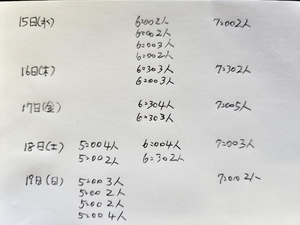 15日(水) 6:00 2人 7:00 2人
6:00 2人
6:00 3人
6:00 2人
16日(木) 6:30 3人 7:30 2人
6:00 3人
17日(金) 6:30 4人 7:00 5人
6:30 3人
18日(土) 5:00 4人 6:00 4人 7:00 3人
5:00 2人 6:30 2人
19日(日) 5:00 3人 7:00 2人
5:00 2人
5:00 2人
5:00 4人